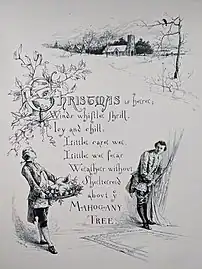 CHRISTMAS is here;
Winds whistle shrill,
Icy and chill,
Little care we:
Little we fear
Weather without
Sheltered
about ye
MAHOGANY
TREE.